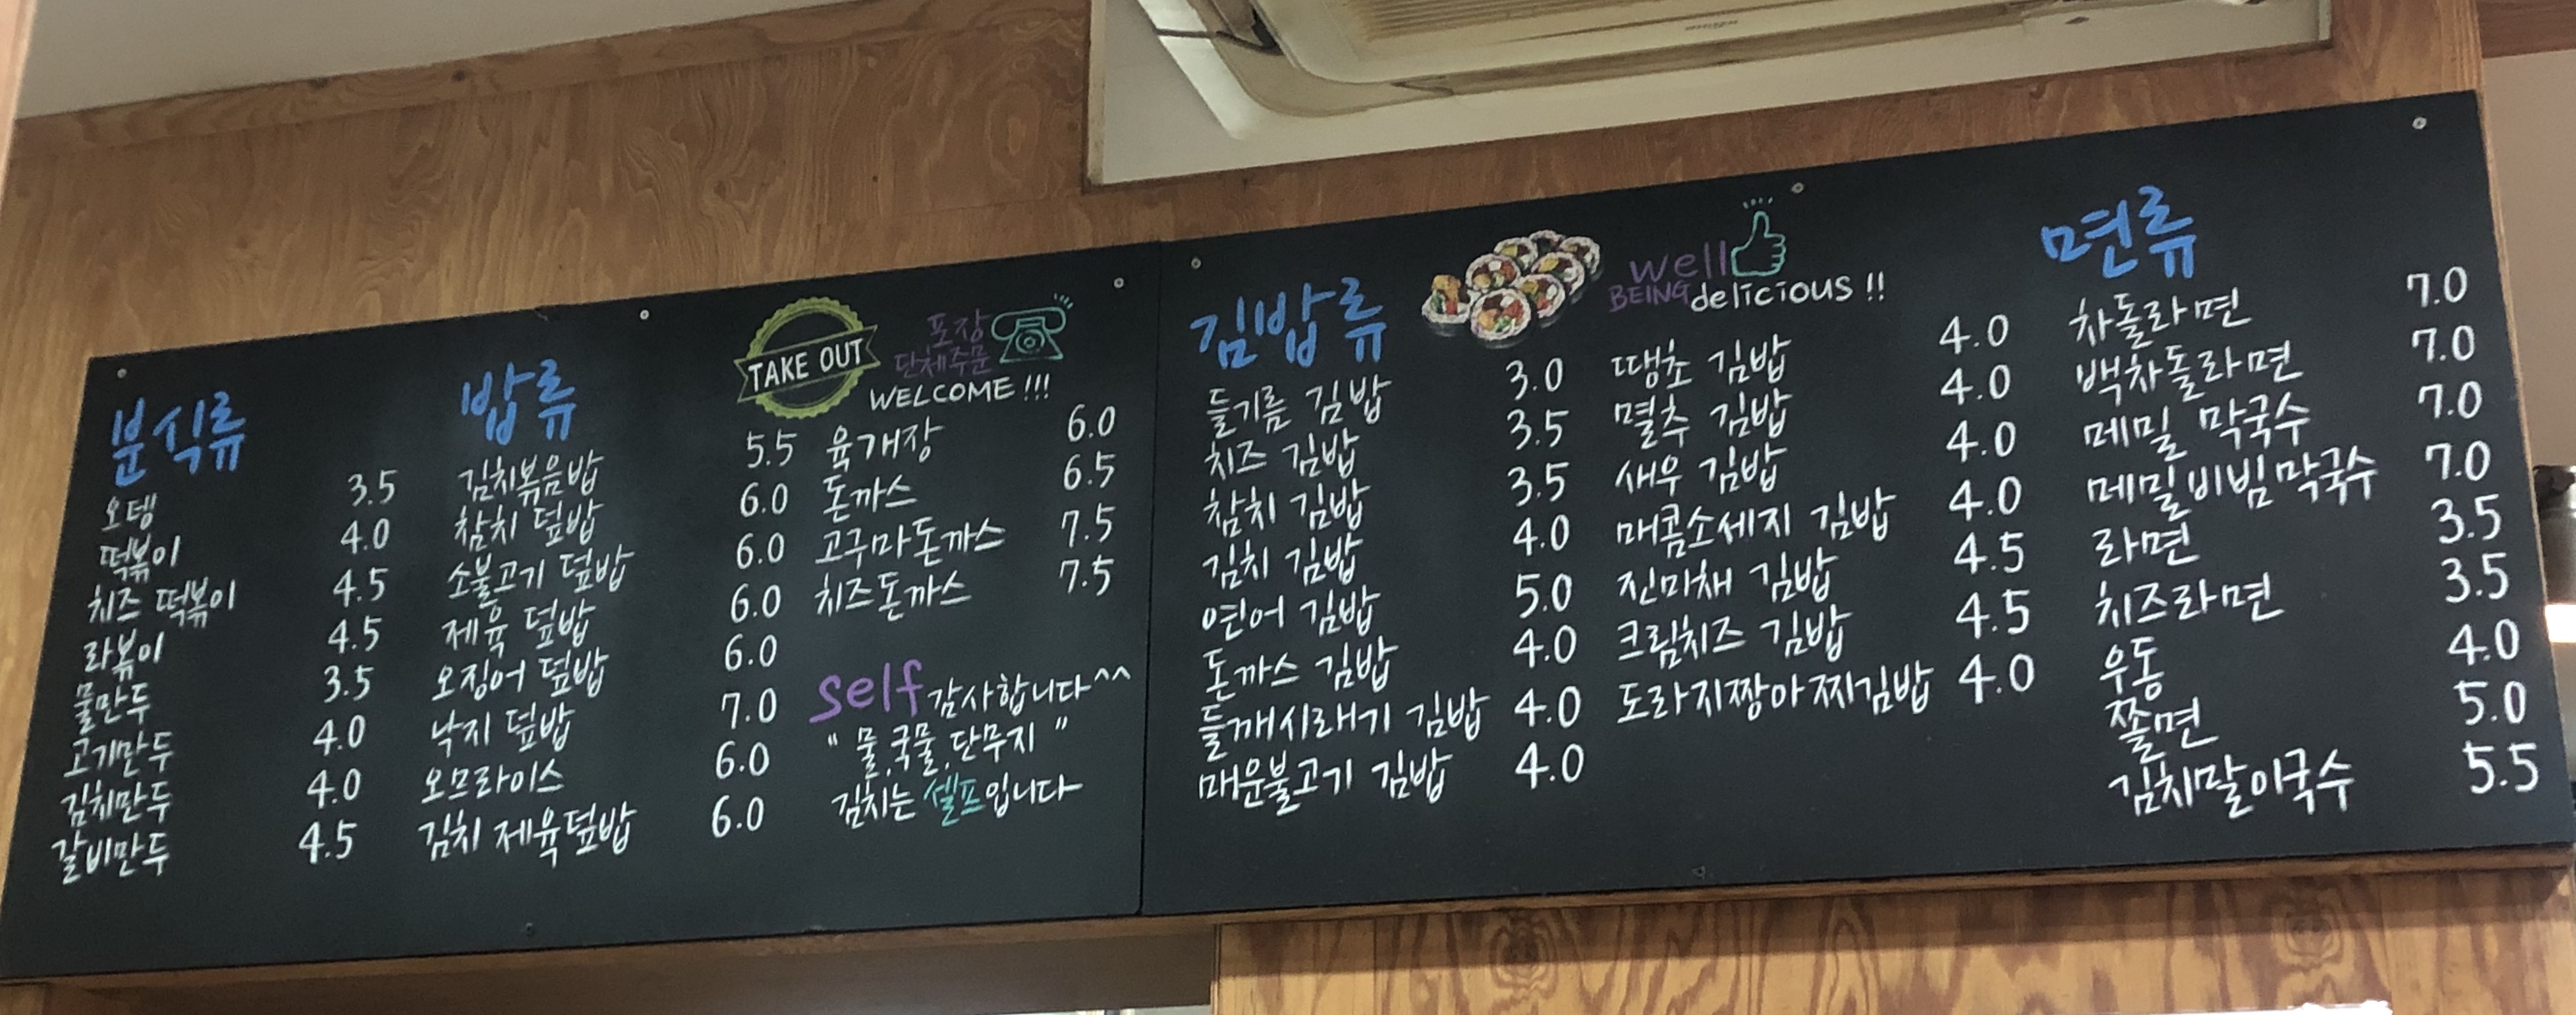 분식류
오뎅 3.5
떡볶이 4.0
치즈 떡볶이 4.5
라볶이 4.5
물만두 3.5
고기만두 4.0
김치만두 4.0
갈비만두 4.5
밥류
김치볶음밥 5.5
참치 덮밥 6.0
소불고기 덮밥 6.0
제육 덮밥 6.0
오징어 덮밥 6.0
낙지 덮밥 7.0
오므라이스 6.0
김치 제육덮밥 6.0
TAKE OUT
포장
단체주문
WELCOME !!!
육개장 6.0
돈까스 6.5
고구마돈까스 7.5
치즈돈까스 7.5
self 감사합니다^^
" 물,국물,단무지 "
김치는 셀프입니다
김밥류
들기름 김밥 3.0
치즈 김밥 3.5
참치 김밥 3.5
김치 김밥 4.0
연어 김밥 5.0
돈까스 김밥 4.0
들깨시래기 김밥 4.0
매운불고기 김밥 4.0
well
BEING delicious !!
땡초 김밥 4.0
멸추 김밥 4.0
새우 김밥 4.0
매콤소세지 김밥 4.0
진미채 김밥 4.5
크림치즈 김밥 4.5
도라지짱아찌김밥 4.0
면류
차돌라면 7.0
백차돌라면 7.0
메밀 막국수 7.0
메밀비빔막국수 7.0
라면 3.5
치즈라면 3.5
우동 4.0
쫄면 5.0
김치말이국수 5.5